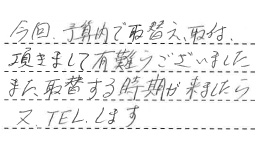 今回、予算内で取替え、取付、
頂きまして有難うございました
また、取替する時期が来ましたら
又、TEL.します